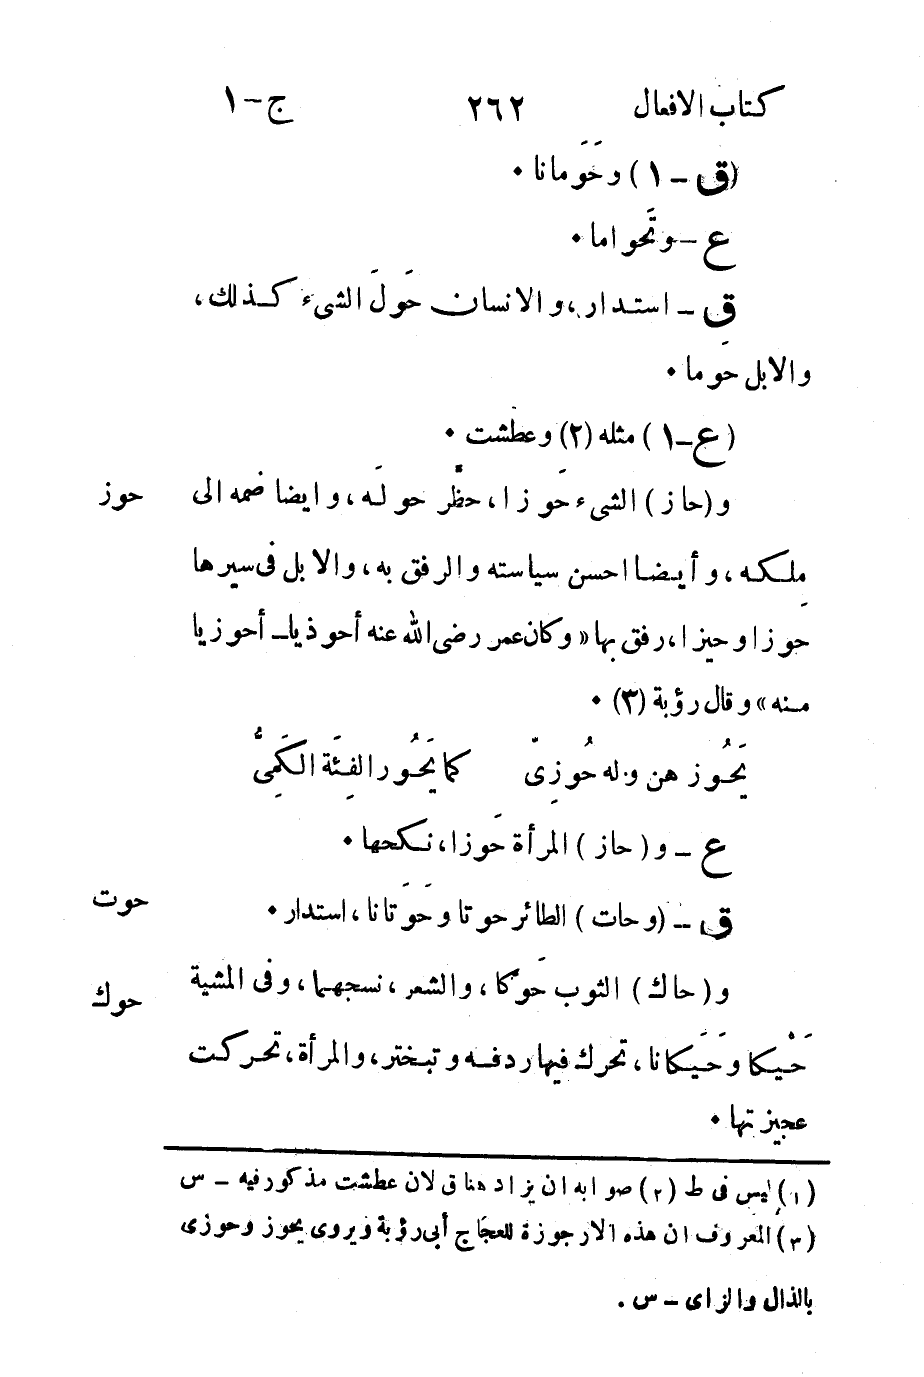 كتاب الافعال ٢٦٢ ج-١
(ق - ١) وحَوَمانا ٠
ع - وتَحواما ٠
ق - استدار، والانسان حَولَ الشىء كذلك،
والابل حَوما ٠
(ع-١) مثله (٢) وعطشت ٠
و (حاز) الشىء حَوزا، حظَّر حولَه، وايضا ضمه الى حوز
مِلكه، وأيضا احسن سياسته والرفق به، والابل فى سيرها
حوزا وحيزا، رفق بها «وكان عمر رضى الله عنه أحوذيا - أحوزيا
منه» وقال رؤبة (٣) ٠
يَحُوزهن وله حُوزِىّ كما يَحُوز الفِئَة الكَمِىُّ
ع - و (حاز) المرأة حَوزا، نكحها ٠
ق - (وحات) الطائر حوتا وحَوَتانا، استدار ٠ حوت
و (حاك) الثوب حَوكا، والشعر، نسجهما، وفى المشية حوك
حَيْكا وحَيَكانا، تحرك فيها ردفه وتبختر، والمرأة، تحركت
عجيزتها ٠
(١) ليس فى ط (٢) صوابه ان يزاد هنا ق لان عطشت مذكور فيه - س
(٣) المعروف ان هذه الارجوزة للعجَاج أبى رؤبة ويروى يحوز وحوزى
بالذال والزاى - س.